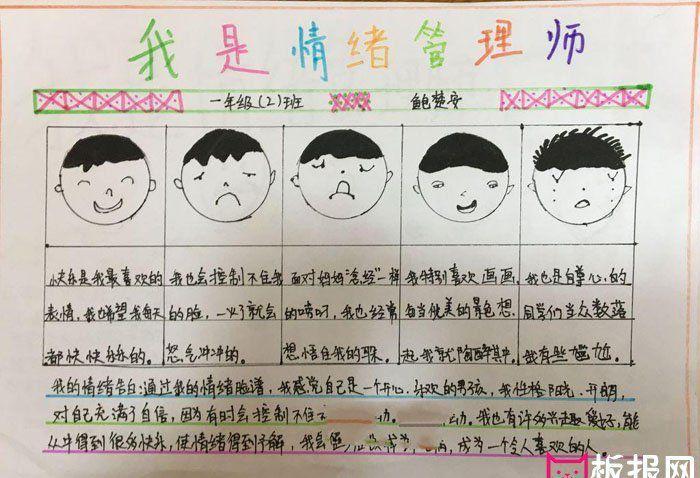 我是情绪管理师
一年级(2)班 鲍楚安
快乐是我最喜欢的
表情,我也希望我每天
都快快乐乐的。
我也会控制不住我
的脸,一火了就会
怒气冲冲的。
面对妈妈"念经"一样
的唠叨,我也经常
想捂自我的耳朵。
我特别喜欢画画,
每当优美的景色想
起我就陶醉其中。
我也是自尊心的
同学们当众数落
我有些尴尬。
我的情绪告白:通过我的情绪脸谱,我感觉自己是一个开心、乐观的男孩,我性格阳光、开朗,
对自己充满了自信,因为有时会控制不住 动。 动。我也有许多兴趣爱好,能
从中得到很多快乐,使情绪得到了解,我会 成为一个令人喜欢的人。
板报网